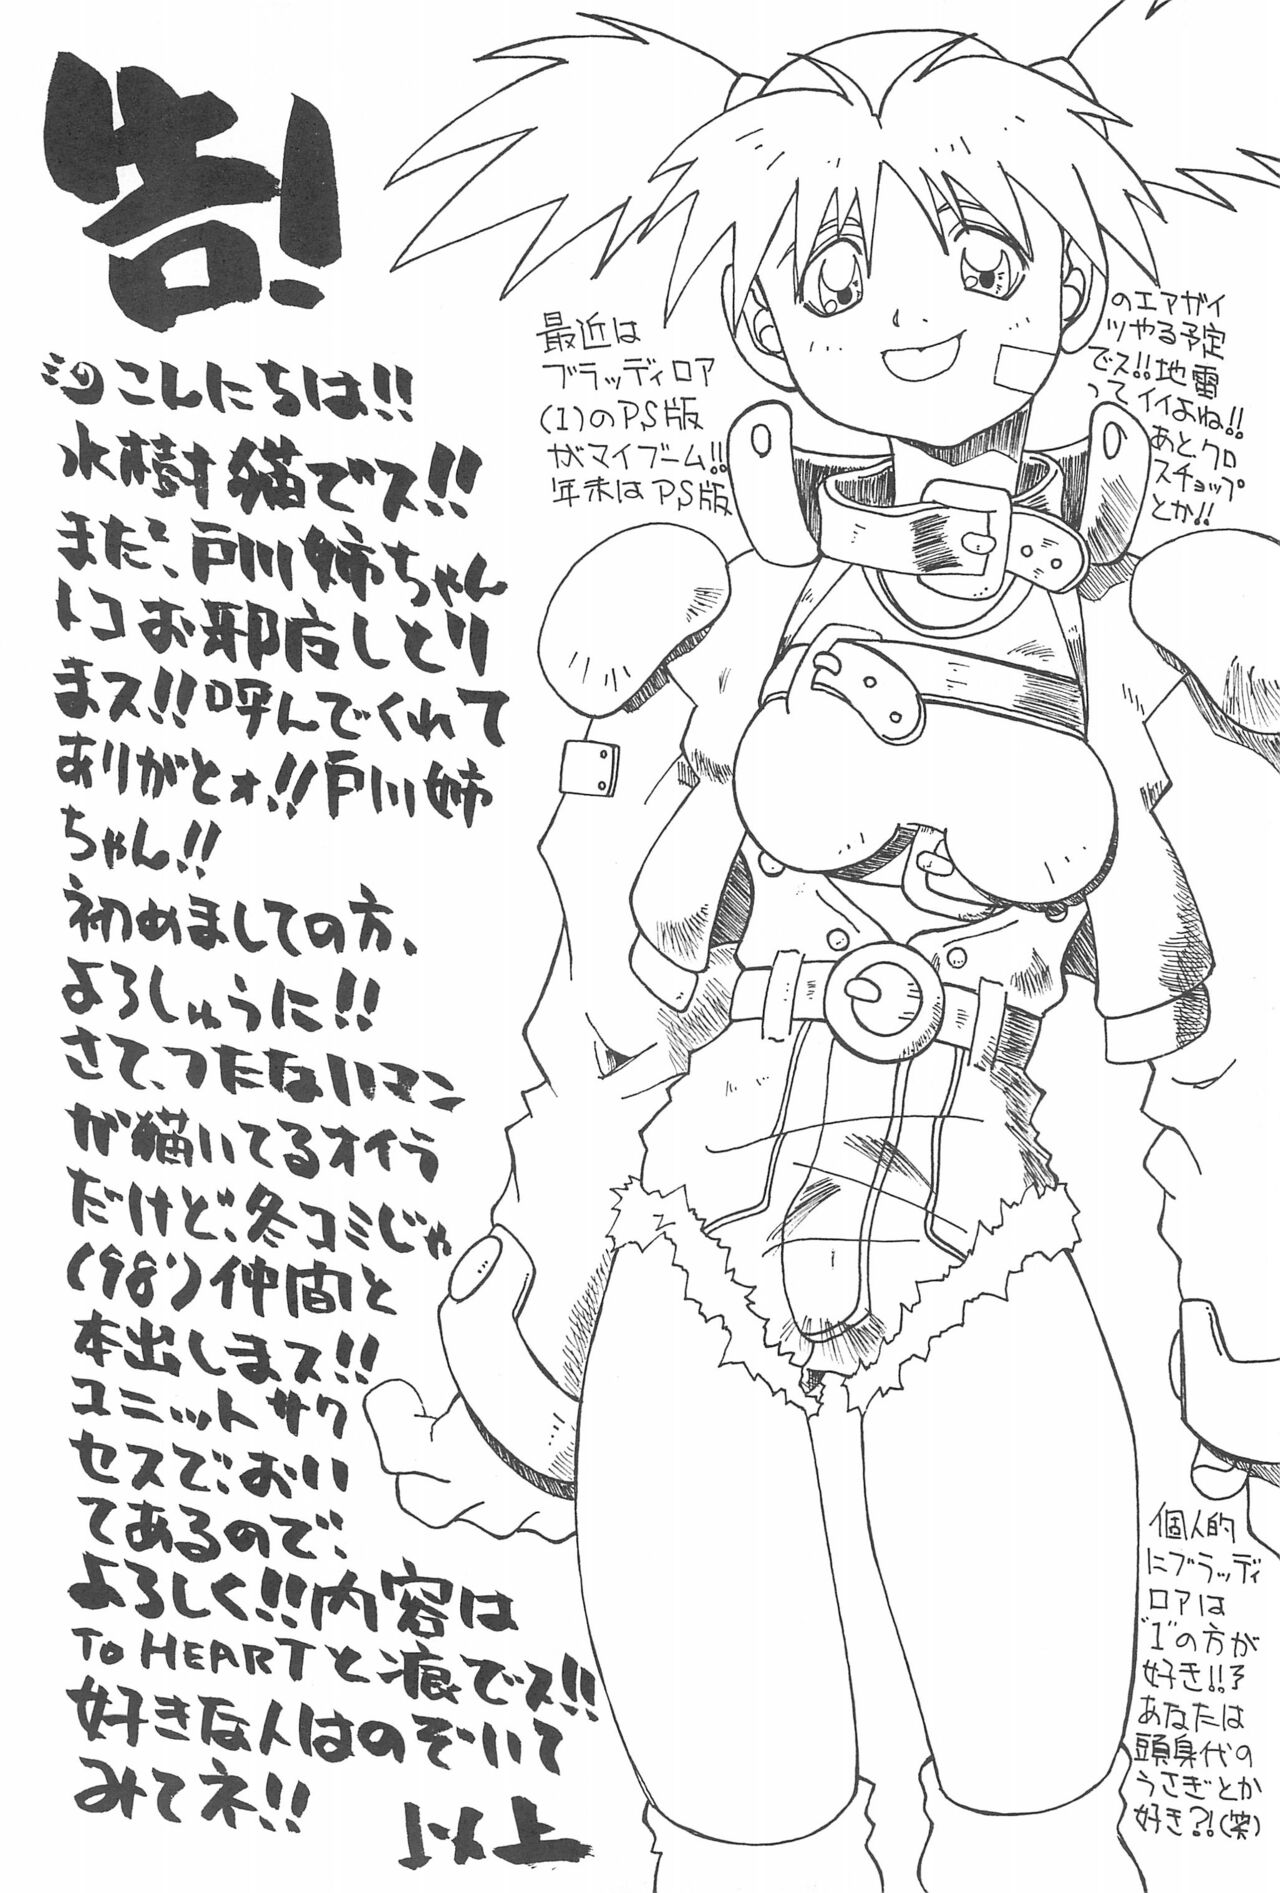 告!
こんにちは!!
水樹猫でス!!
まだ、戸川姉ちゃん
トコお邪广しとり
まス!!呼んでくれて
ありがとォ!!戸川姉
ちゃん!!
初めましての方、
よろしゅうに!!
さて、つたないマン
が猫いてるオイラ
だけど、冬コミじゃ
(98')仲間と
本出しまス!!
ユニットサク
セスで、おい
てあるので、
よろしく!!内容は
TO HEARTと痕でス!!
好きな人はのぞいて
みてネ!!
以上
最近は
ブラッディロア
(1)のPS版
がマイブーム!!
年末はPS版
のエアガイ
ツやる予定
でス!!地雷
ってイイよね!!
あと、クロ
スチョップ
とか!!
個人的
にブラッディ
ロアは
"1"の方が
好き!!
あなたは
頭身代の
うさぎとか
好き?!(笑)